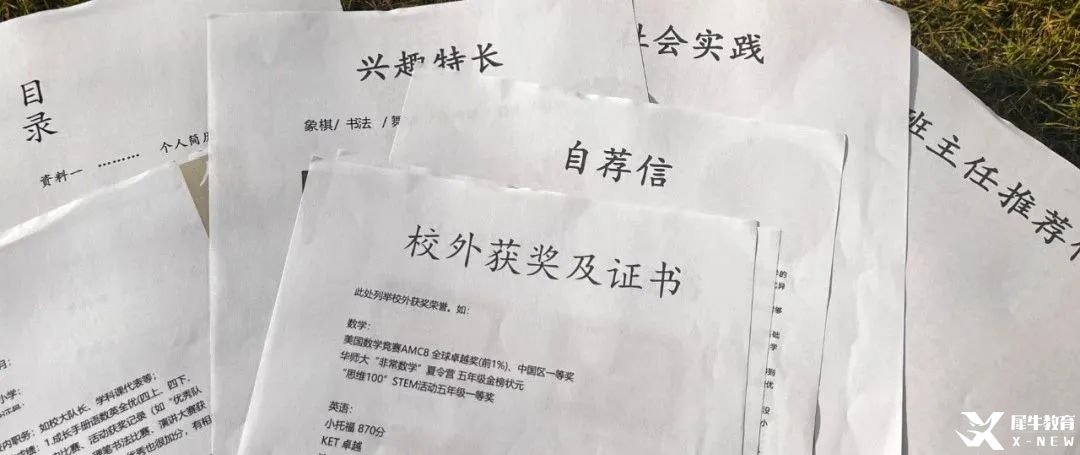 目录
资料一 ......... 个人简历
兴趣特长
象棋/ 书法 /舞
社会实践
班主任推荐信
自荐信
校外获奖及证书
此处列举校外获奖荣誉。如：
数学：
美国数学竞赛AMC8 全球卓越奖(前1%)、中国区一等奖
华师大“非常数学”夏令营 五年级金榜状元
“思维100”STEM活动五年级一等奖
英语：
小托福 870分
KET 卓越
月：
小学：
内职务：如校大队长、学科课代表等；
绩：1.成长手册语数英全优(四上、四下、
比赛、活动获奖记录（如“优秀队
硬笔书法比赛、演讲大赛获
秀也很加分，有相
的
异
够
础
学
到
优
没
小
犀牛教育
X-NEW